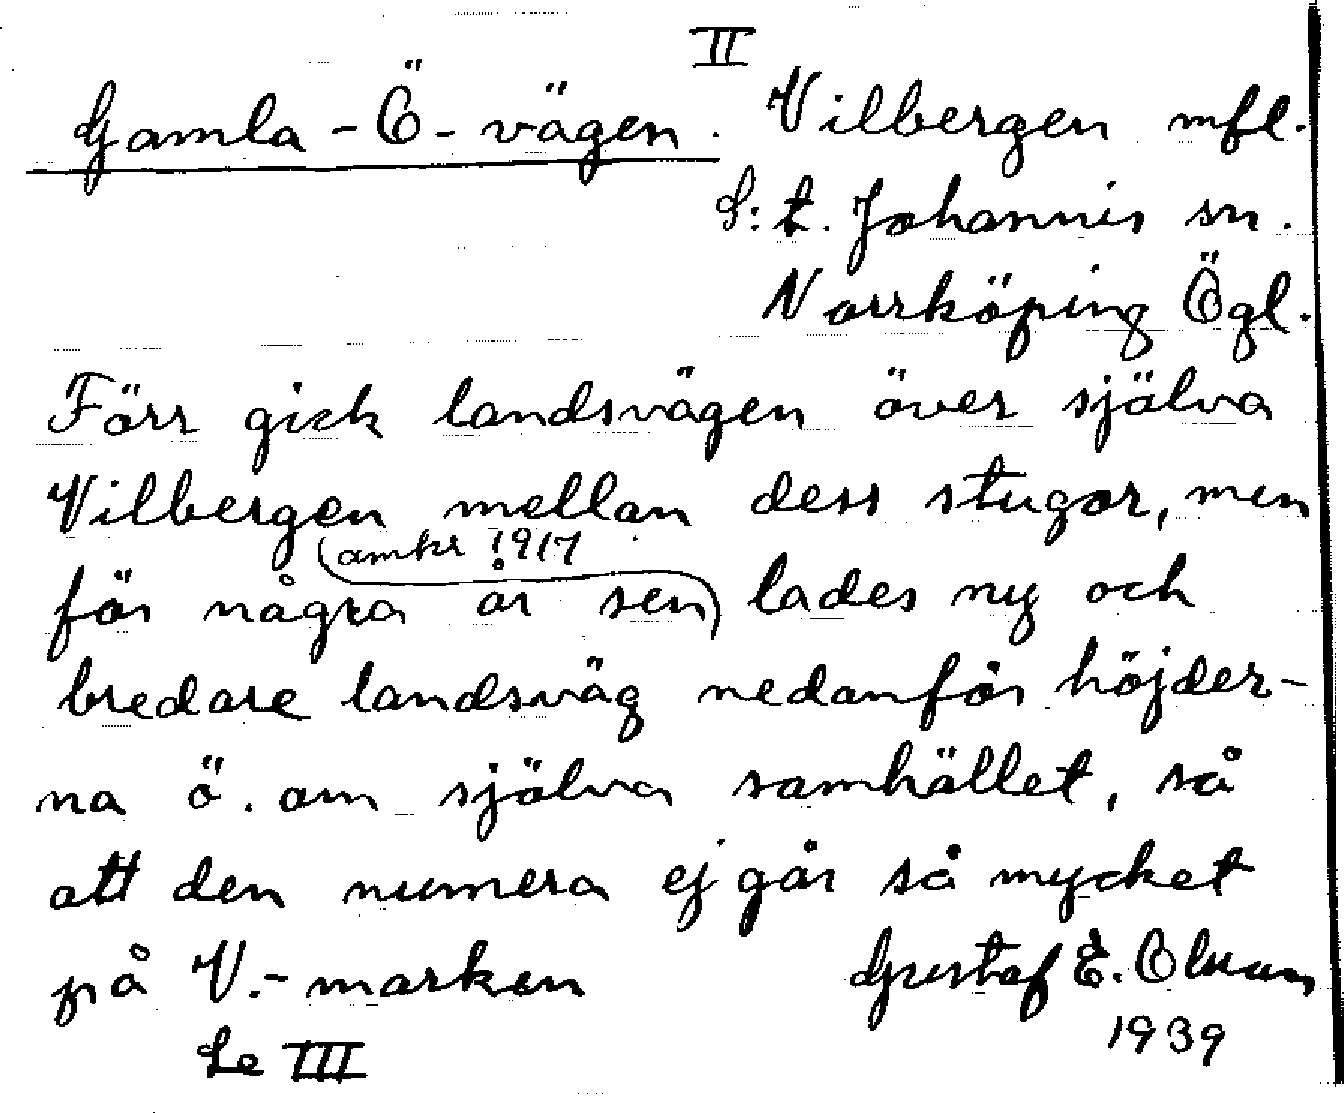 II
Gamla-Ö-vägen. Vilbergen mfl.
S:t. Johannis sn.
Norrköping Ögl.
Förr gick landsvägen över själva
Vilbergen mellan dess stugor, men
(omkr 1917
för några år sen) lades ny och
bredare landsväg nedanför höjder-
na ö. om själva samhället, så
att den numera ej går så mycket
på V.-marken
Gustaf E. Olsson
1939
Se III